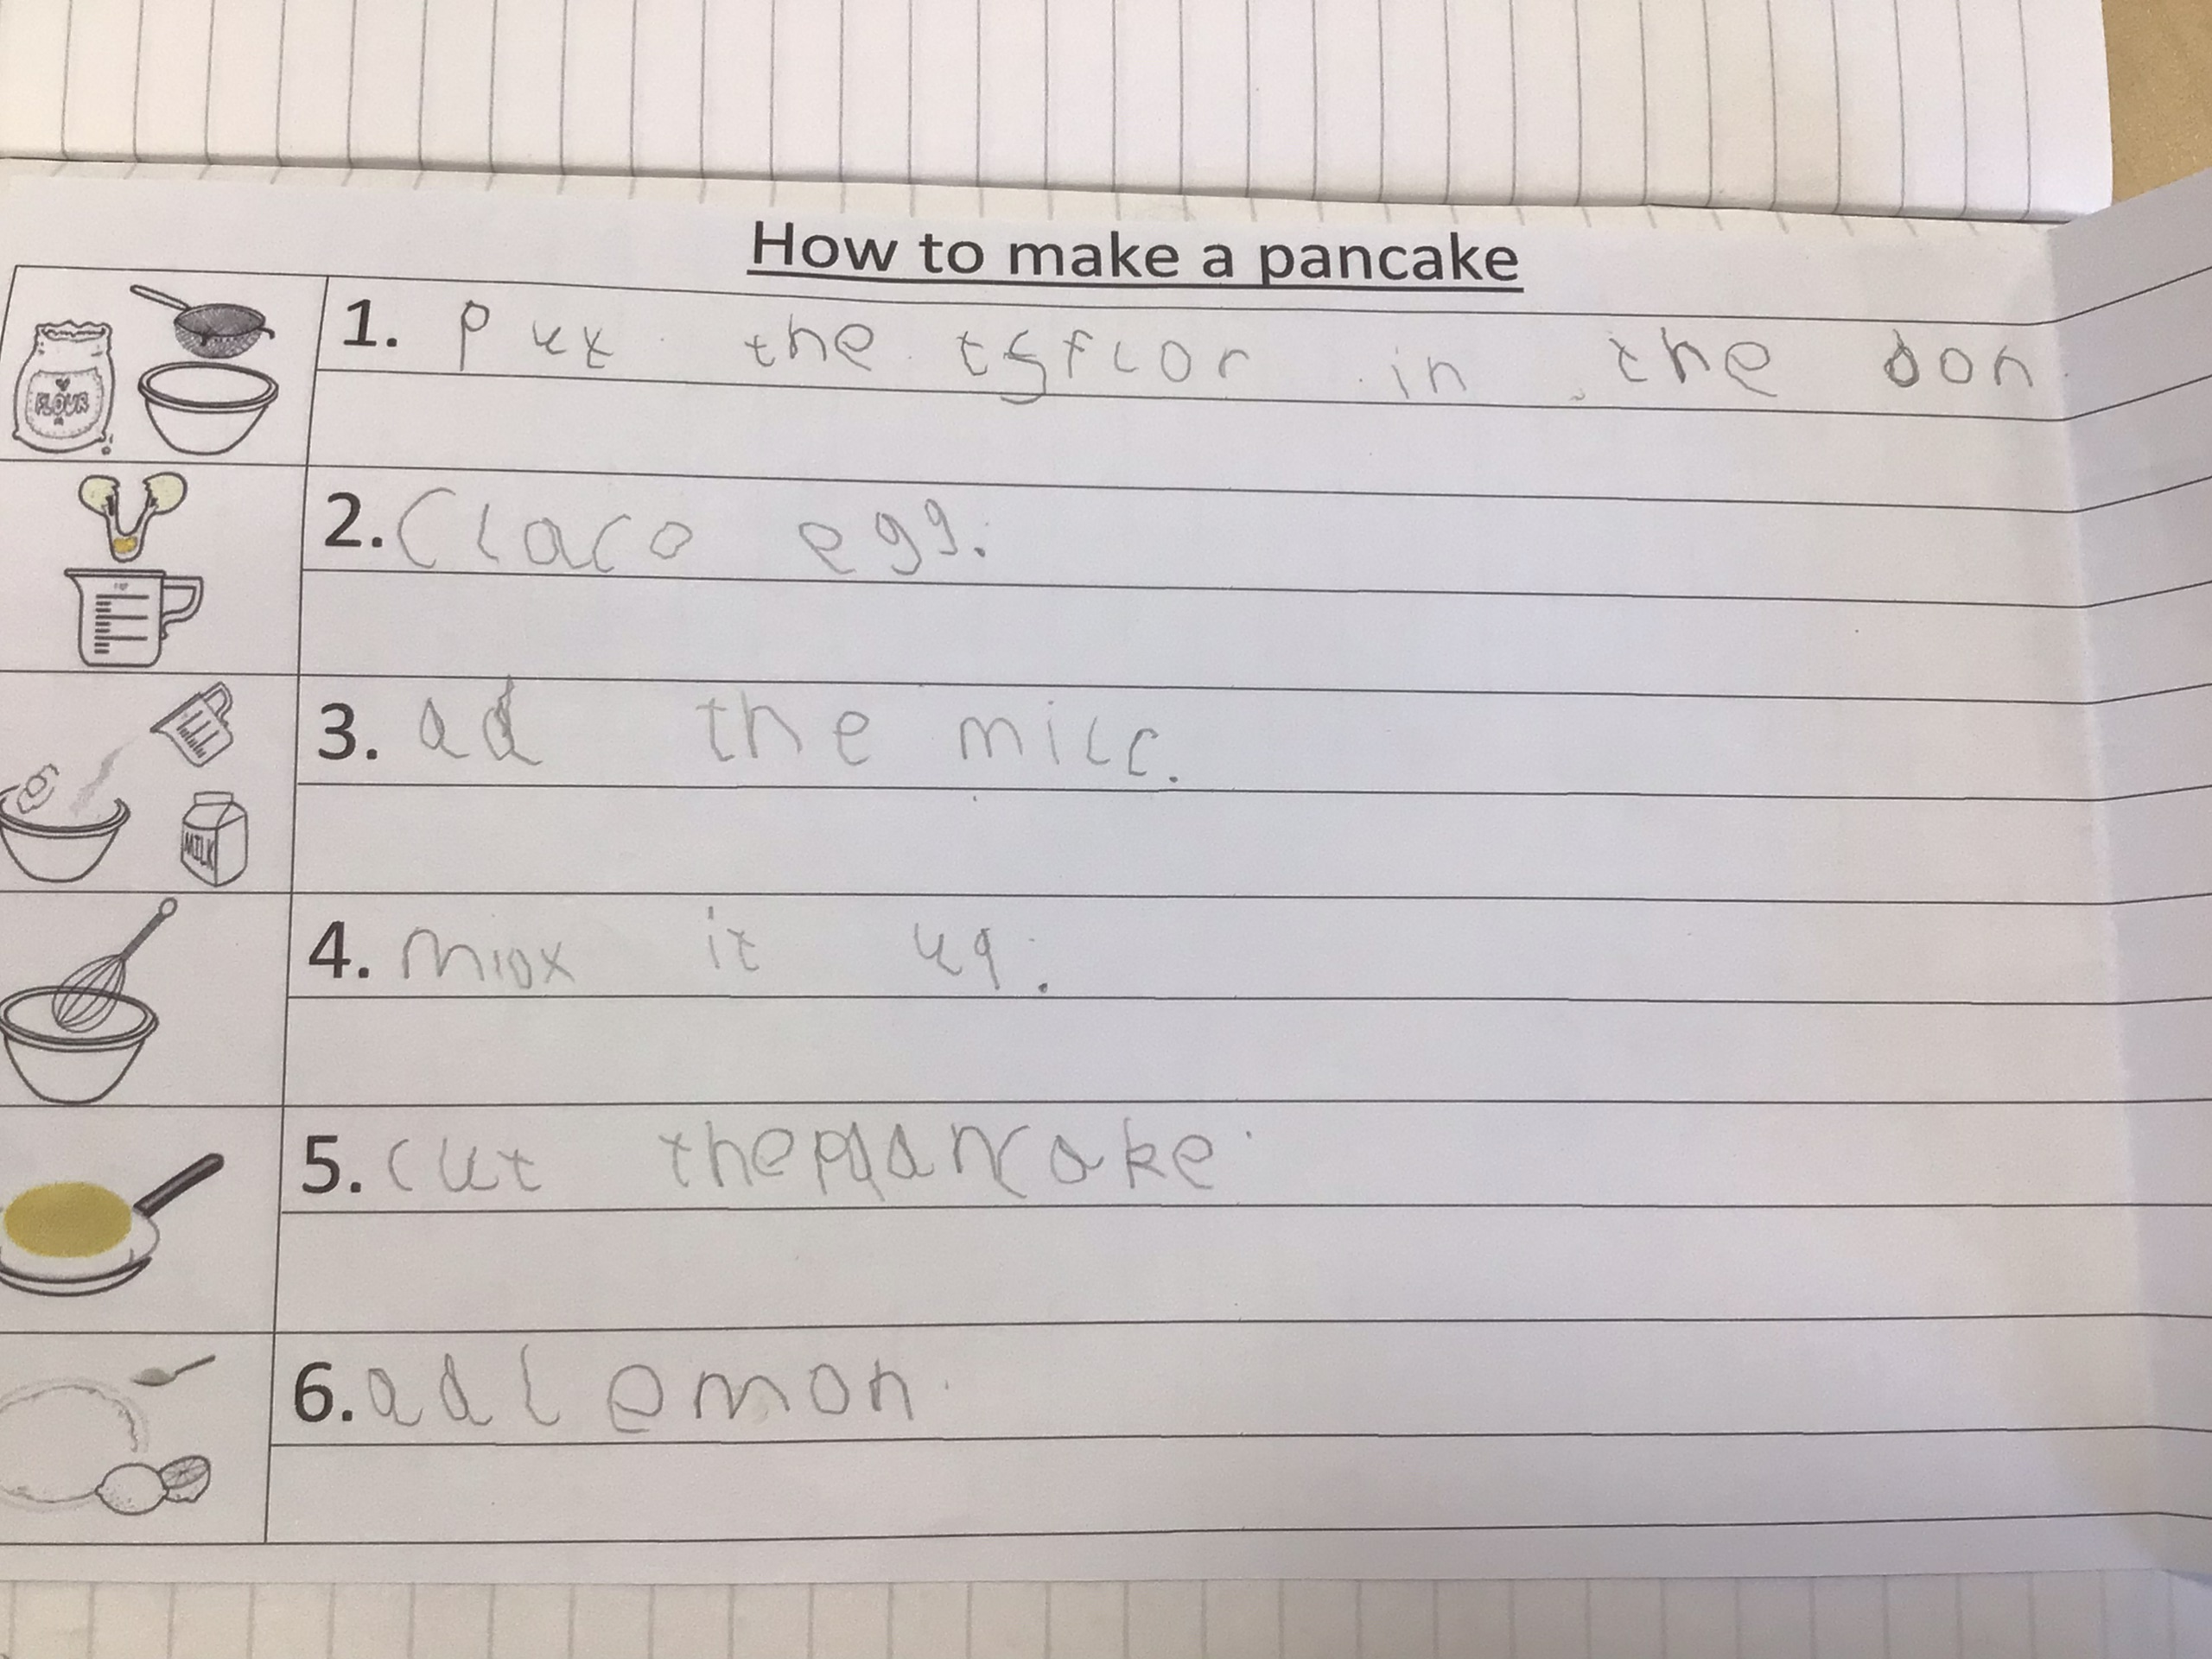 How to make a pancake
1. put the tsflor in the don
FLOUR
2. Claco egg.
3. ad the milc.
MILK
4. miox it uq.
5. cut the pancake.
6. ad lemon.